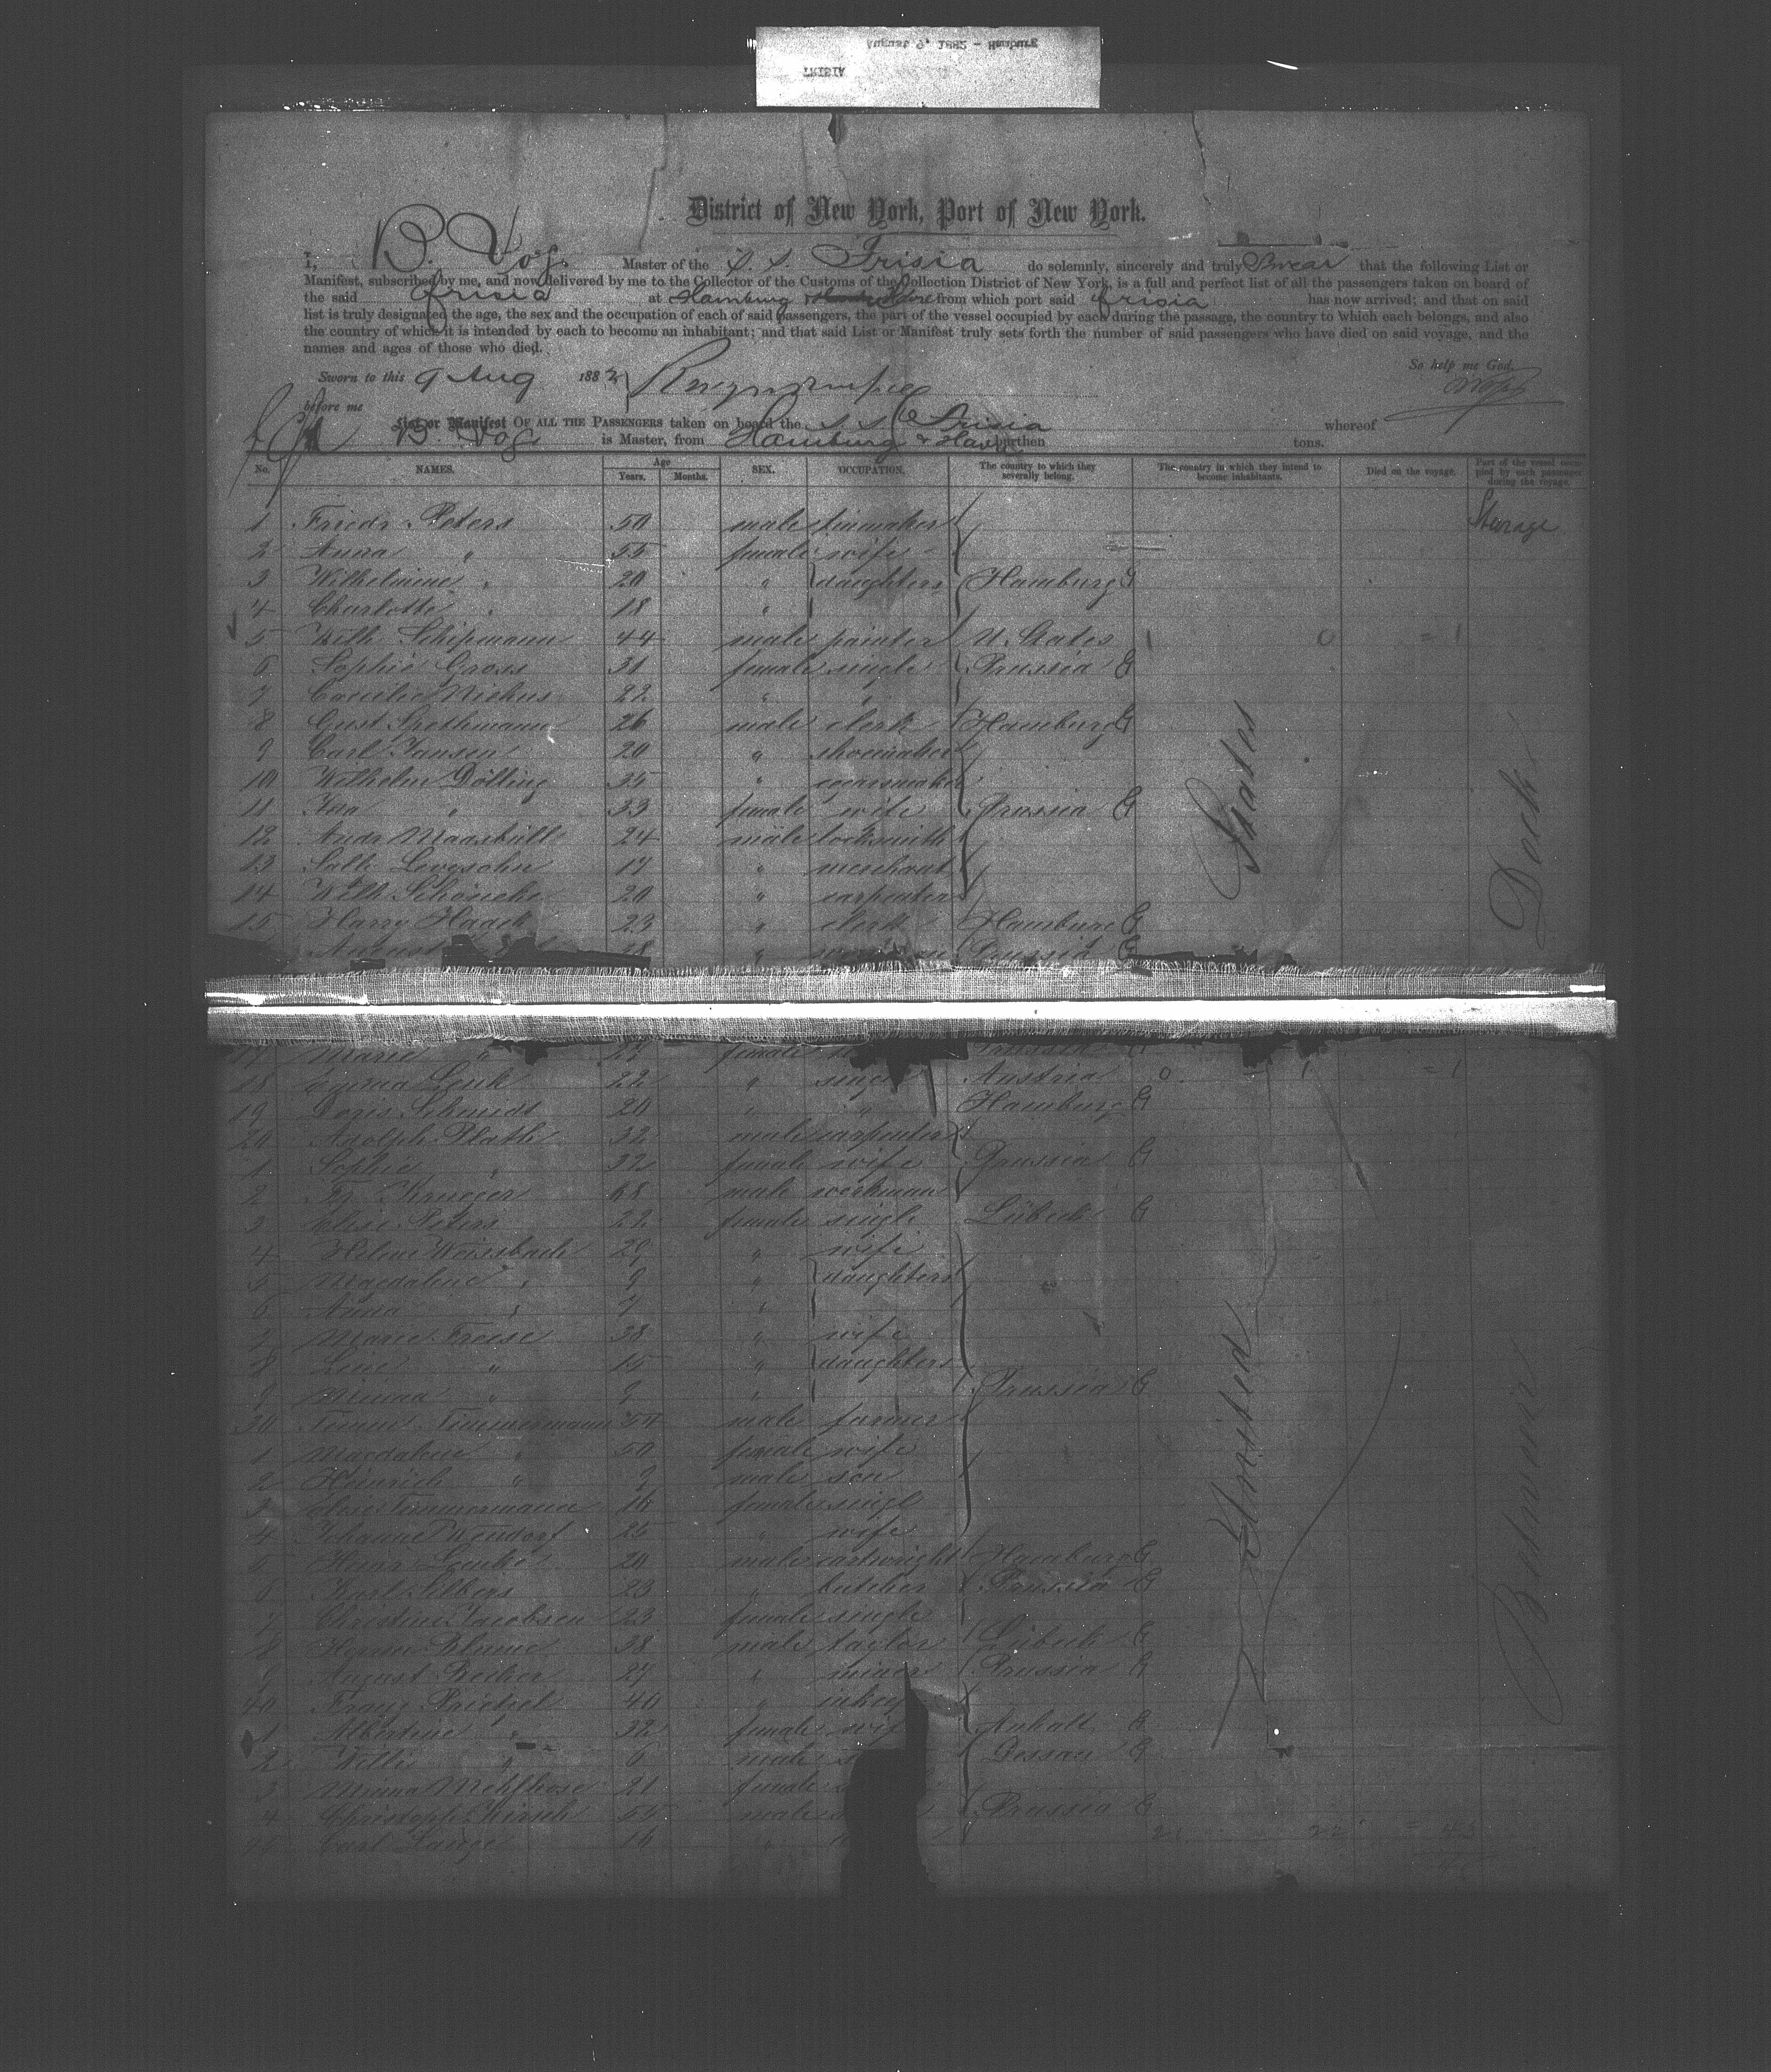 August 9, 1882 - Hamburg
FRISIA
District of New York, Port of New York.
I, B. Vogt Master of the S. S. Frisia do solemnly, sincerely and truly Swear that the following List or
Manifest, subscribed by me, and now delivered by me to the Collector of the Customs of the Collection District of New York, is a full and perfect list of all the passengers taken on board of
the said Frisia at Hamburg from which port said Frisia has now arrived; and that on said
list is truly designated the age, the sex and the occupation of each of said passengers, the part of the vessel occupied by each during the passage, the country to which each belongs, and also
the country of which it is intended by each to become an inhabitant; and that said List or Manifest truly sets forth the number of said passengers who have died on said voyage, and the
names and ages of those who died.
So help me God.
Sworn to this 9 Aug 1882
before me
List or Manifest OF ALL THE PASSENGERS taken on board the S. S. Frisia whereof
B. Vogt is Master, from Hamburg & Havre burthen tons.
No. NAMES. Age Years. Months. SEX. OCCUPATION. The country to which they severally belong. The country in which they intend to become inhabitants. Died on the voyage. Part of the vessel occupied by each passenger during the voyage.
1 Friedr. Peters 50 male Steerage
2 Anna " 55 female wife
3 Wilhelmine " 20 " daughters Hamburg G
4 Charlotte " 18 "
5 Wilh. Schipmann 44 male painter U. States 1 0 = 1
6 Sophie Gross 31 female single Prussia G
7 Caecilie Niehus 22 " "
8 Gust. Spethmann 26 male clerk Hamburg G
9 Carl Jansen 20 " shoemaker
10 Wilhelm Dölling 35 " cigarmaker
11 Ida " 33 female wife Prussia G
12 Andr. Maasbüll 24 male locksmith
13 Sally Levysohn 17 " merchant
14 Wilh. Schönecke 20 " carpenter
15 Harry Haack 23 " clerk Hamburg G
August 28 " Prussia G
17 Marie " 27 female Prussia G
18 Emma Lenk 22 " single Austria 0 1 = 1
19 Doris Schmidt 20 " " Hamburg G
20 Adolph Plath 32 male carpenter
1 Sophie " 32 female wife Prussia G
2 Fr. Krueger 68 male workman
3 Elise Peters 22 female single Lübeck G
4 Helene Weissbach 29 " wife
5 Magdalene " 9 " daughters
6 Anna " 7 "
7 Marie Freese 38 " wife
8 Line " 15 " daughters
9 Minna " 9 " Prussia G
30 Timmermann 54 male farmer
1 Magdalene " 50 female wife
2 Heinrich " 9 male son
3 Timmermann 16 female single
4 Johanne Wendorf 25 " wife
5 Heinr. Lemke 20 male cartwright Hamburg G
6 Karl 23 " butcher Prussia G
7 Christine Jacobsen 23 female single
8 Herm. Blume 38 male taylor Lübeck G
9 August Becker 27 " miner Prussia G
40 Franz Prietzel 40 "
1 Albertine " 32 female wife Anhalt G
2 Willie " 6 male Dessau G
3 Minna 21 female
4 Christoph Hirsch 54 male Prussia G
45 Carl Lange 16 " 21 22 = 43
United States
Between Deck